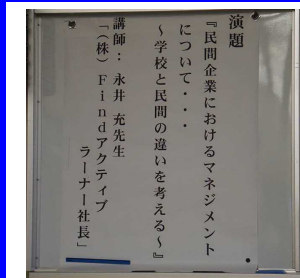 演題
『民間企業におけるマネジメント
について・・・
～学校と民間の違いを考える～』
講師：永井 充先生
「（株）Findアクティブ
ラーナー社長」